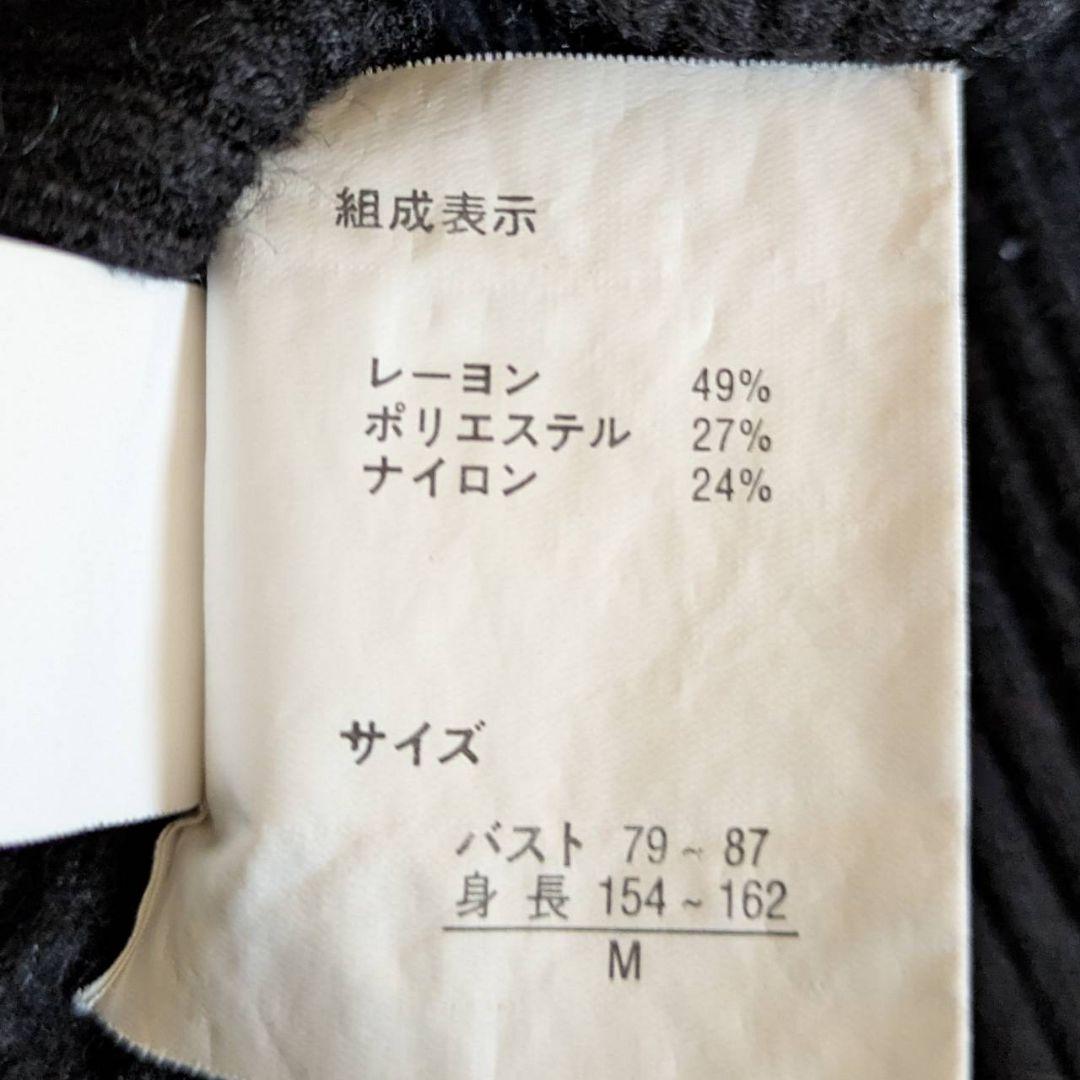 組成表示
レーヨン 49%
ポリエステル 27%
ナイロン 24%
サイズ
バスト 79~87
身長 154~162
M